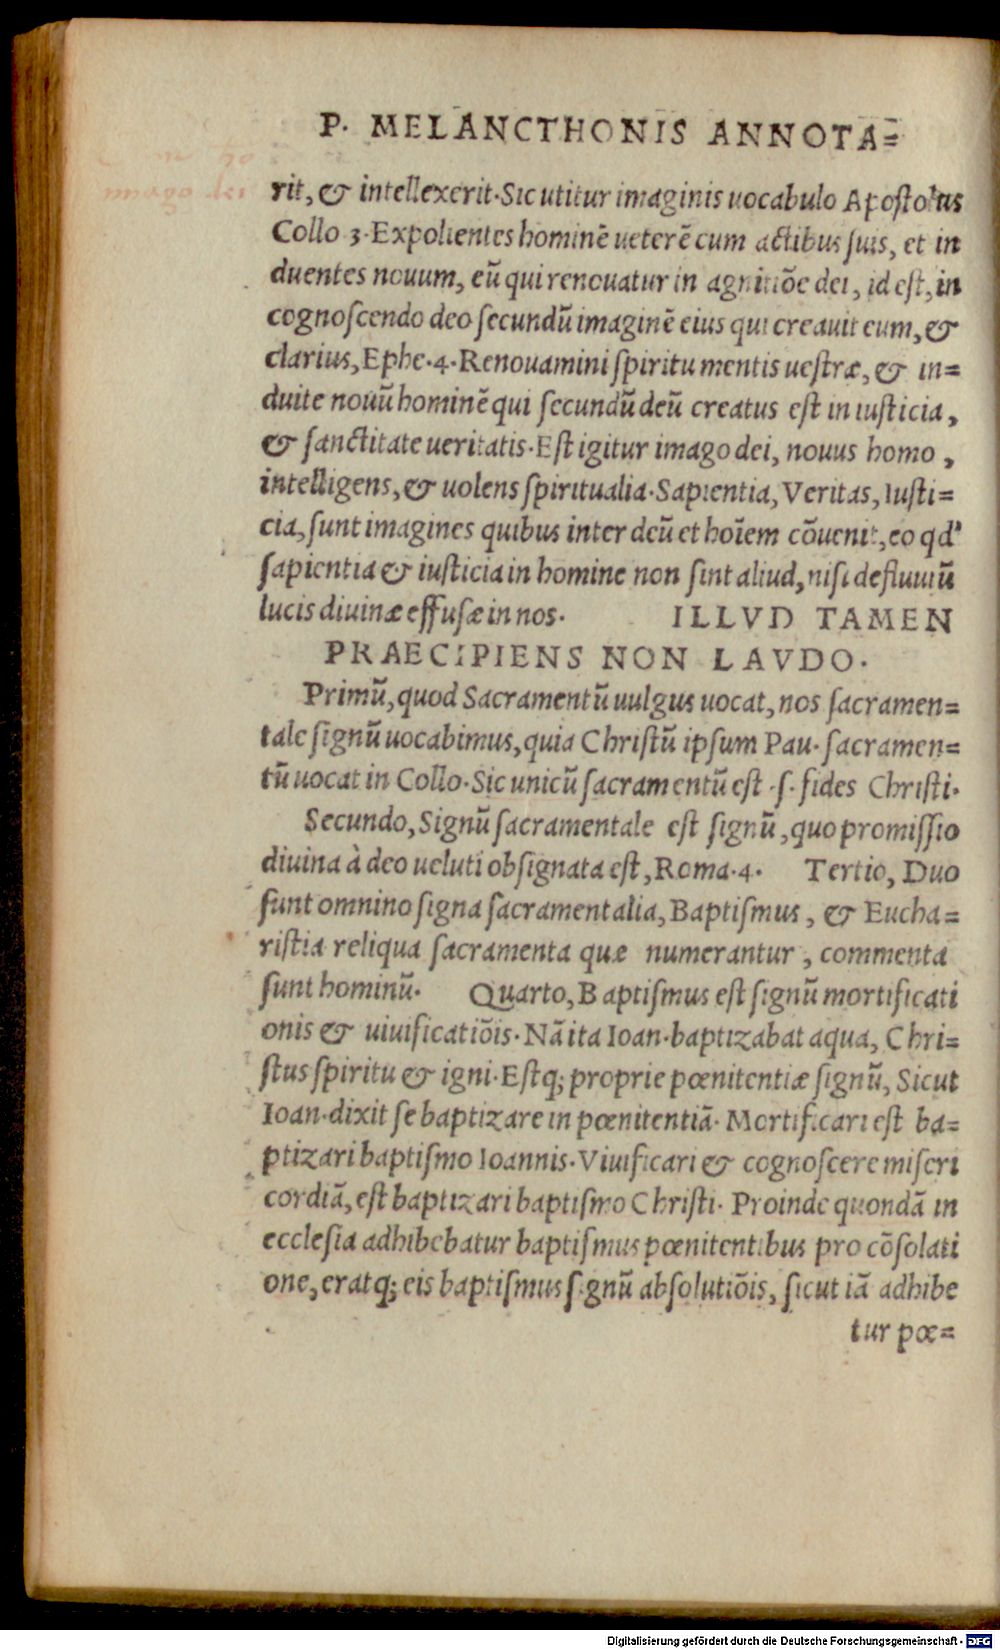 P. MELANCTHONIS ANNOTA=
rit, & intellexerit. Sic utitur imaginis uocabulo Apostolus
Collo 3. Expolientes hominē ueterē cum actibus suis, et in
duentes nouum, eū qui renouatur in agnitiōe dei, id est, in
cognoscendo deo secundū imaginē eius qui creauit eum, &
clarius, Ephe. 4. Renouamini spiritu mentis uestræ, & in=
duite nouū hominē qui secundū deū creatus est in iusticia,
& sanctitate ueritatis. Est igitur imago dei, nouus homo,
intelligens, & uolens spiritualia. Sapientia, Veritas, Iusti=
cia, sunt imagines quibus inter deū et hoīem cōuenit, eo qd'
sapientia & iusticia in homine non sint aliud, nisi defluuiū
lucis diuinæ effusæ in nos. ILLVD TAMEN
PRAECIPIENS NON LAVDO.
Primū, quod Sacramentū uulgus uocat, nos sacramen=
tale signū uocabimus, quia Christū ipsum Pau. sacramen=
tū uocat in Collo. Sic unicū sacramentū est .s. fides Christi.
Secundo, Signū sacramentale est signū, quo promissio
diuina à deo ueluti obsignata est, Roma. 4. Tertio, Duo
sunt omnino signa sacramentalia, Baptismus, & Eucha=
ristia reliqua sacramenta quæ numerantur, commenta
sunt hominū. Quarto, Baptismus est signū mortificati
onis & uiuificatiōis. Nā ita Ioan. baptizabat aqua, Chri=
stus spiritu & igni. Estq; proprie pœnitentiæ signū, Sicut
Ioan. dixit se baptizare in pœnitentiā. Mortificari est ba=
ptizari baptismo Ioannis. Viuificari & cognoscere miseri
cordiā, est baptizari baptismo Christi. Proinde quondā in
ecclesia adhibebatur baptismus pœnitentibus pro cōsolati
one, eratq; eis baptismus signū absolutiōis, sicut iā adhibe
tur pœ=
imago dei
Digitalisierung gefördert durch die Deutsche Forschungsgemeinschaft - DFG